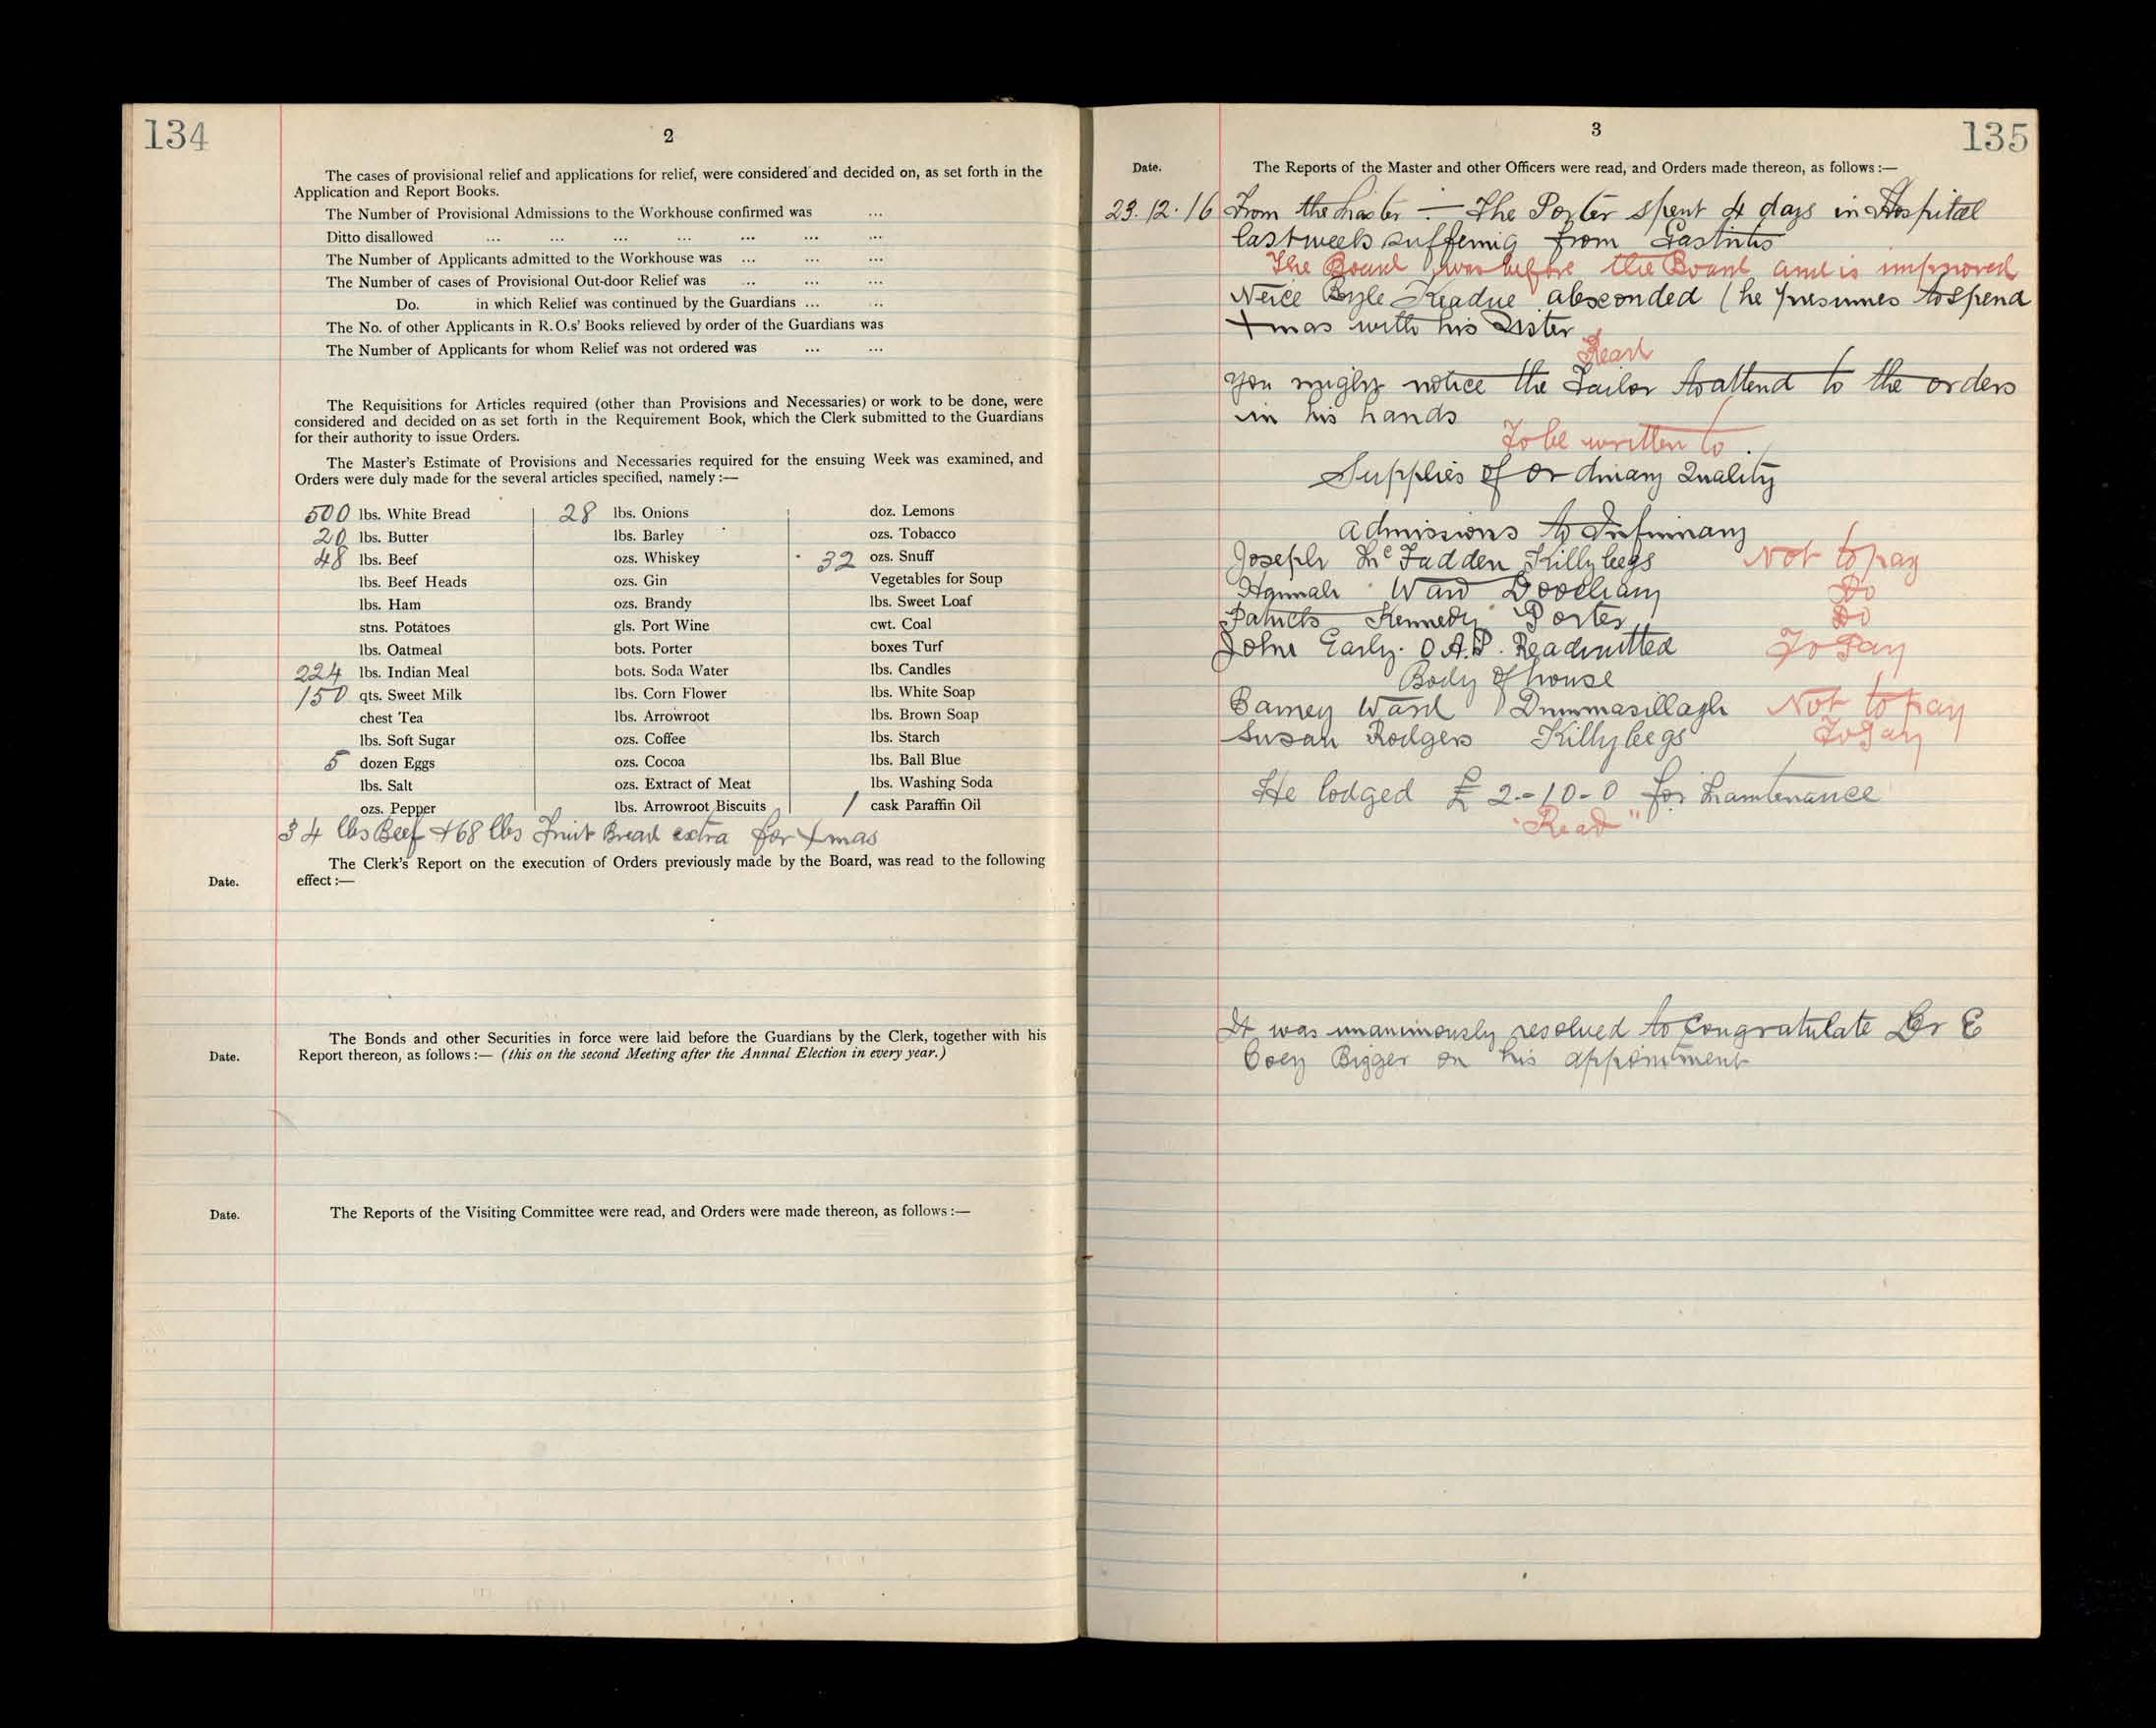 134
2
The cases of provisional relief and applications for relief, were considered and decided on, as set forth in the
Application and Report Books.
The Number of Provisional Admissions to the Workhouse confirmed was ...
Ditto disallowed ... ... ... ... ... ... ...
The Number of Applicants admitted to the Workhouse was ... ... ...
The Number of cases of Provisional Out-door Relief was ... ... ...
Do. in which Relief was continued by the Guardians ... ...
The No. of other Applicants in R.O.s' Books relieved by order of the Guardians was
The Number of Applicants for whom Relief was not ordered was ... ...
The Requisitions for Articles required (other than Provisions and Necessaries) or work to be done, were
considered and decided on as set forth in the Requirement Book, which the Clerk submitted to the Guardians
for their authority to issue Orders.
The Master's Estimate of Provisions and Necessaries required for the ensuing Week was examined, and
Orders were duly made for the several articles specified, namely :—
500 lbs. White Bread
20 lbs. Butter
48 lbs. Beef
lbs. Beef Heads
lbs. Ham
stns. Potatoes
lbs. Oatmeal
224 lbs. Indian Meal
150 qts. Sweet Milk
chest Tea
lbs. Soft Sugar
5 dozen Eggs
lbs. Salt
ozs. Pepper
28 lbs. Onions
lbs. Barley
ozs. Whiskey
ozs. Gin
ozs. Brandy
gls. Port Wine
bots. Porter
bots. Soda Water
lbs. Corn Flower
lbs. Arrowroot
ozs. Coffee
ozs. Cocoa
ozs. Extract of Meat
lbs. Arrowroot Biscuits
doz. Lemons
ozs. Tobacco
32 ozs. Snuff
Vegetables for Soup
lbs. Sweet Loaf
cwt. Coal
boxes Turf
lbs. Candles
lbs. White Soap
lbs. Brown Soap
lbs. Starch
lbs. Ball Blue
lbs. Washing Soda
1 cask Paraffin Oil
34 lbs Beef + 68 lbs Fruit Bread extra for Xmas
The Clerk's Report on the execution of Orders previously made by the Board, was read to the following
Date. effect :—
The Bonds and other Securities in force were laid before the Guardians by the Clerk, together with his
Date. Report thereon, as follows :— (this on the second Meeting after the Annnal Election in every year.)
Date. The Reports of the Visiting Committee were read, and Orders were made thereon, as follows :—
3
135
Date. The Reports of the Master and other Officers were read, and Orders made thereon, as follows :—
23.12.16 From the Master :— The Porter spent 4 days in Hospital
last week suffering from Gastritis
The Board was before the Board and is improved
Neice Boyle Keadue absconded (he presumes to spend
Xmas with his Sister
Read
You might notice the Tailor to attend to the orders
in his hands
To be written to.
Supplies of ordinary Quality
Admissions to Infirmary
Joseph McFadden Killybegs Not to pay
Hannah Ward Doochary Do
Patrick Kennedy Porter Do
John Early. O.A.P. Readmitted To Pay
Body of house
Barney Ward Drummasillagh Not to pay
Susan Rodgers Killybegs To Pay
He lodged £2-10-0 for Maintenance
"Read"
It was unanimously resolved to Congratulate Dr E
Coey Bigger on his appointment